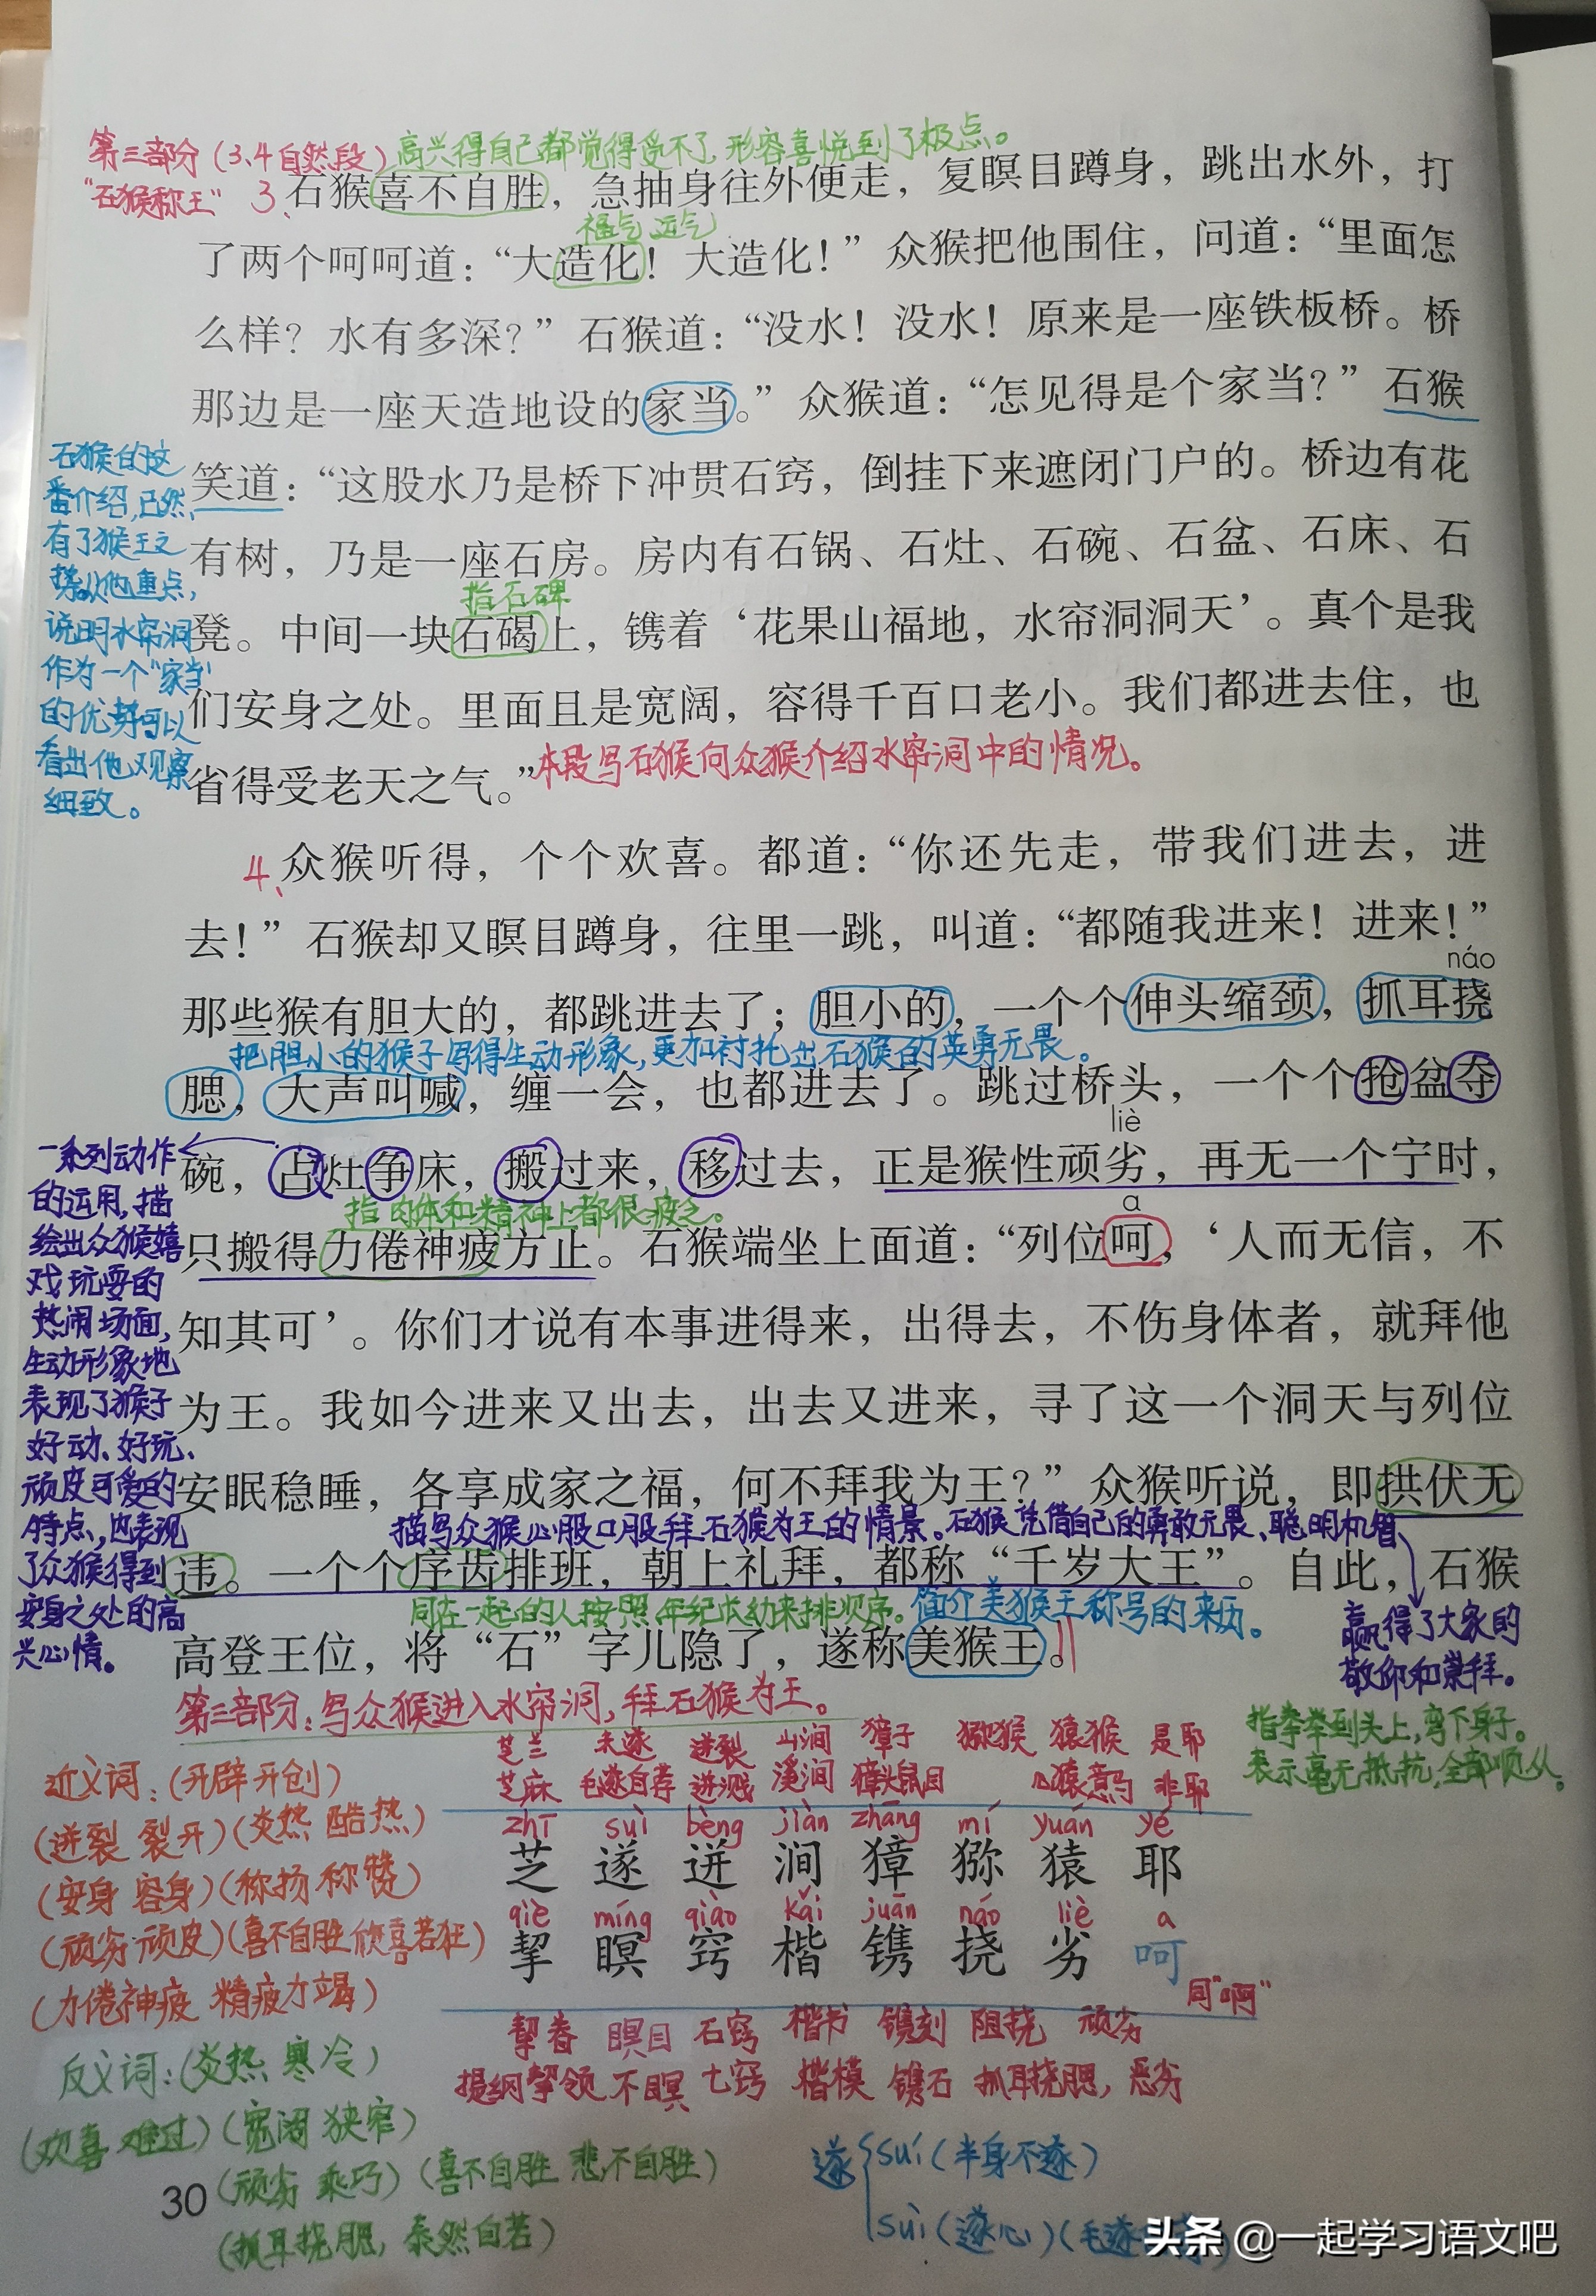 第三部分（3、4自然段）高兴得自己都觉得受不了，形容喜悦到了极点。
“石猴称王” 3、石猴喜不自胜，急抽身往外便走，复瞑目蹲身，跳出水外，打
福气 运气
了两个呵呵道：“大造化！大造化！”众猴把他围住，问道：“里面怎
么样？水有多深？”石猴道：“没水！没水！原来是一座铁板桥。桥
那边是一座天造地设的家当。”众猴道：“怎见得是个家当？”石猴
笑道：“这股水乃是桥下冲贯石窍，倒挂下来遮闭门户的。桥边有花
有树，乃是一座石房。房内有石锅、石灶、石碗、石盆、石床、石
指石碑
凳。中间一块石碣上，镌着‘花果山福地，水帘洞洞天’。真个是我
们安身之处。里面且是宽阔，容得千百口老小。我们都进去住，也
省得受老天之气。”本段写石猴向众猴介绍水帘洞中的情况。
石猴的这
番介绍，已然
有了猴王之
势。从他重点，
说明水帘洞
作为一个“家当”
的优势可以
看出他观察
细致。
4、众猴听得，个个欢喜。都道：“你还先走，带我们进去，进
去！”石猴却又瞑目蹲身，往里一跳，叫道：“都随我进来！进来！”
náo
那些猴有胆大的，都跳进去了；胆小的，一个个伸头缩颈，抓耳挠
把胆小的猴子写得生动形象，更加衬托出石猴的英勇无畏。
腮，大声叫喊，缠一会，也都进去了。跳过桥头，一个个抢盆夺
liè
碗，占灶争床，搬过来，移过去，正是猴性顽劣，再无一个宁时，
指肉体和精神上都很疲乏。
a
只搬得力倦神疲方止。石猴端坐上面道：“列位呵，‘人而无信，不
知其可’。你们才说有本事进得来，出得去，不伤身体者，就拜他
为王。我如今进来又出去，出去又进来，寻了这一个洞天与列位
安眠稳睡，各享成家之福，何不拜我为王？”众猴听说，即拱伏无
描写众猴心服口服拜石猴为王的情景。石猴凭借自己的勇敢无畏、聪明机智
违。一个个序齿排班，朝上礼拜，都称“千岁大王”。自此，石猴
同在一起的人按照年纪长幼来排顺序。简介美猴王称号的来历。
高登王位，将“石”字儿隐了，遂称美猴王。
赢得了大家的
敬仰和崇拜。
一系列动作
的运用，描
绘出众猴嬉
戏玩耍的
热闹场面，
生动形象地
表现了猴子
好动、好玩、
顽皮可爱的
特点，也表现
了众猴得到
安身之处的高
兴心情。
第三部分：写众猴进入水帘洞，拜石猴为王。
指拳举到头上，弯下身子。
表示毫无抵抗，全部顺从。
芝兰 未遂 迸裂 山涧 獐子 猕猴 猿猴 是耶
芝麻 毛遂自荐 迸溅 溪涧 獐头鼠目 心猿意马 非耶
zhī suì bèng jiàn zhāng mí yuán yé
芝 遂 迸 涧 獐 猕 猿 耶
qiè míng qiào kǎi juān náo liè a
挈 瞑 窍 楷 镌 挠 劣 呵
同“啊”
挈眷 瞑目 石窍 楷书 镌刻 阻挠 顽劣
提纲挈领 不瞑 七窍 楷模 镌石 抓耳挠腮，恶劣
近义词：（开辟 开创）
（迸裂 裂开）（炎热 酷热）
（安身 容身）（称扬 称赞）
（顽劣 顽皮）（喜不自胜 欣喜若狂）
（力倦神疲 精疲力竭）
反义词：（炎热 寒冷）
（欢喜 难过）（宽阔 狭窄）
（顽劣 乖巧）（喜不自胜 悲不自胜）
（抓耳挠腮，泰然自若）
遂 suí（半身不遂）
suì（遂心）（毛遂
30
头条 @一起学习语文吧